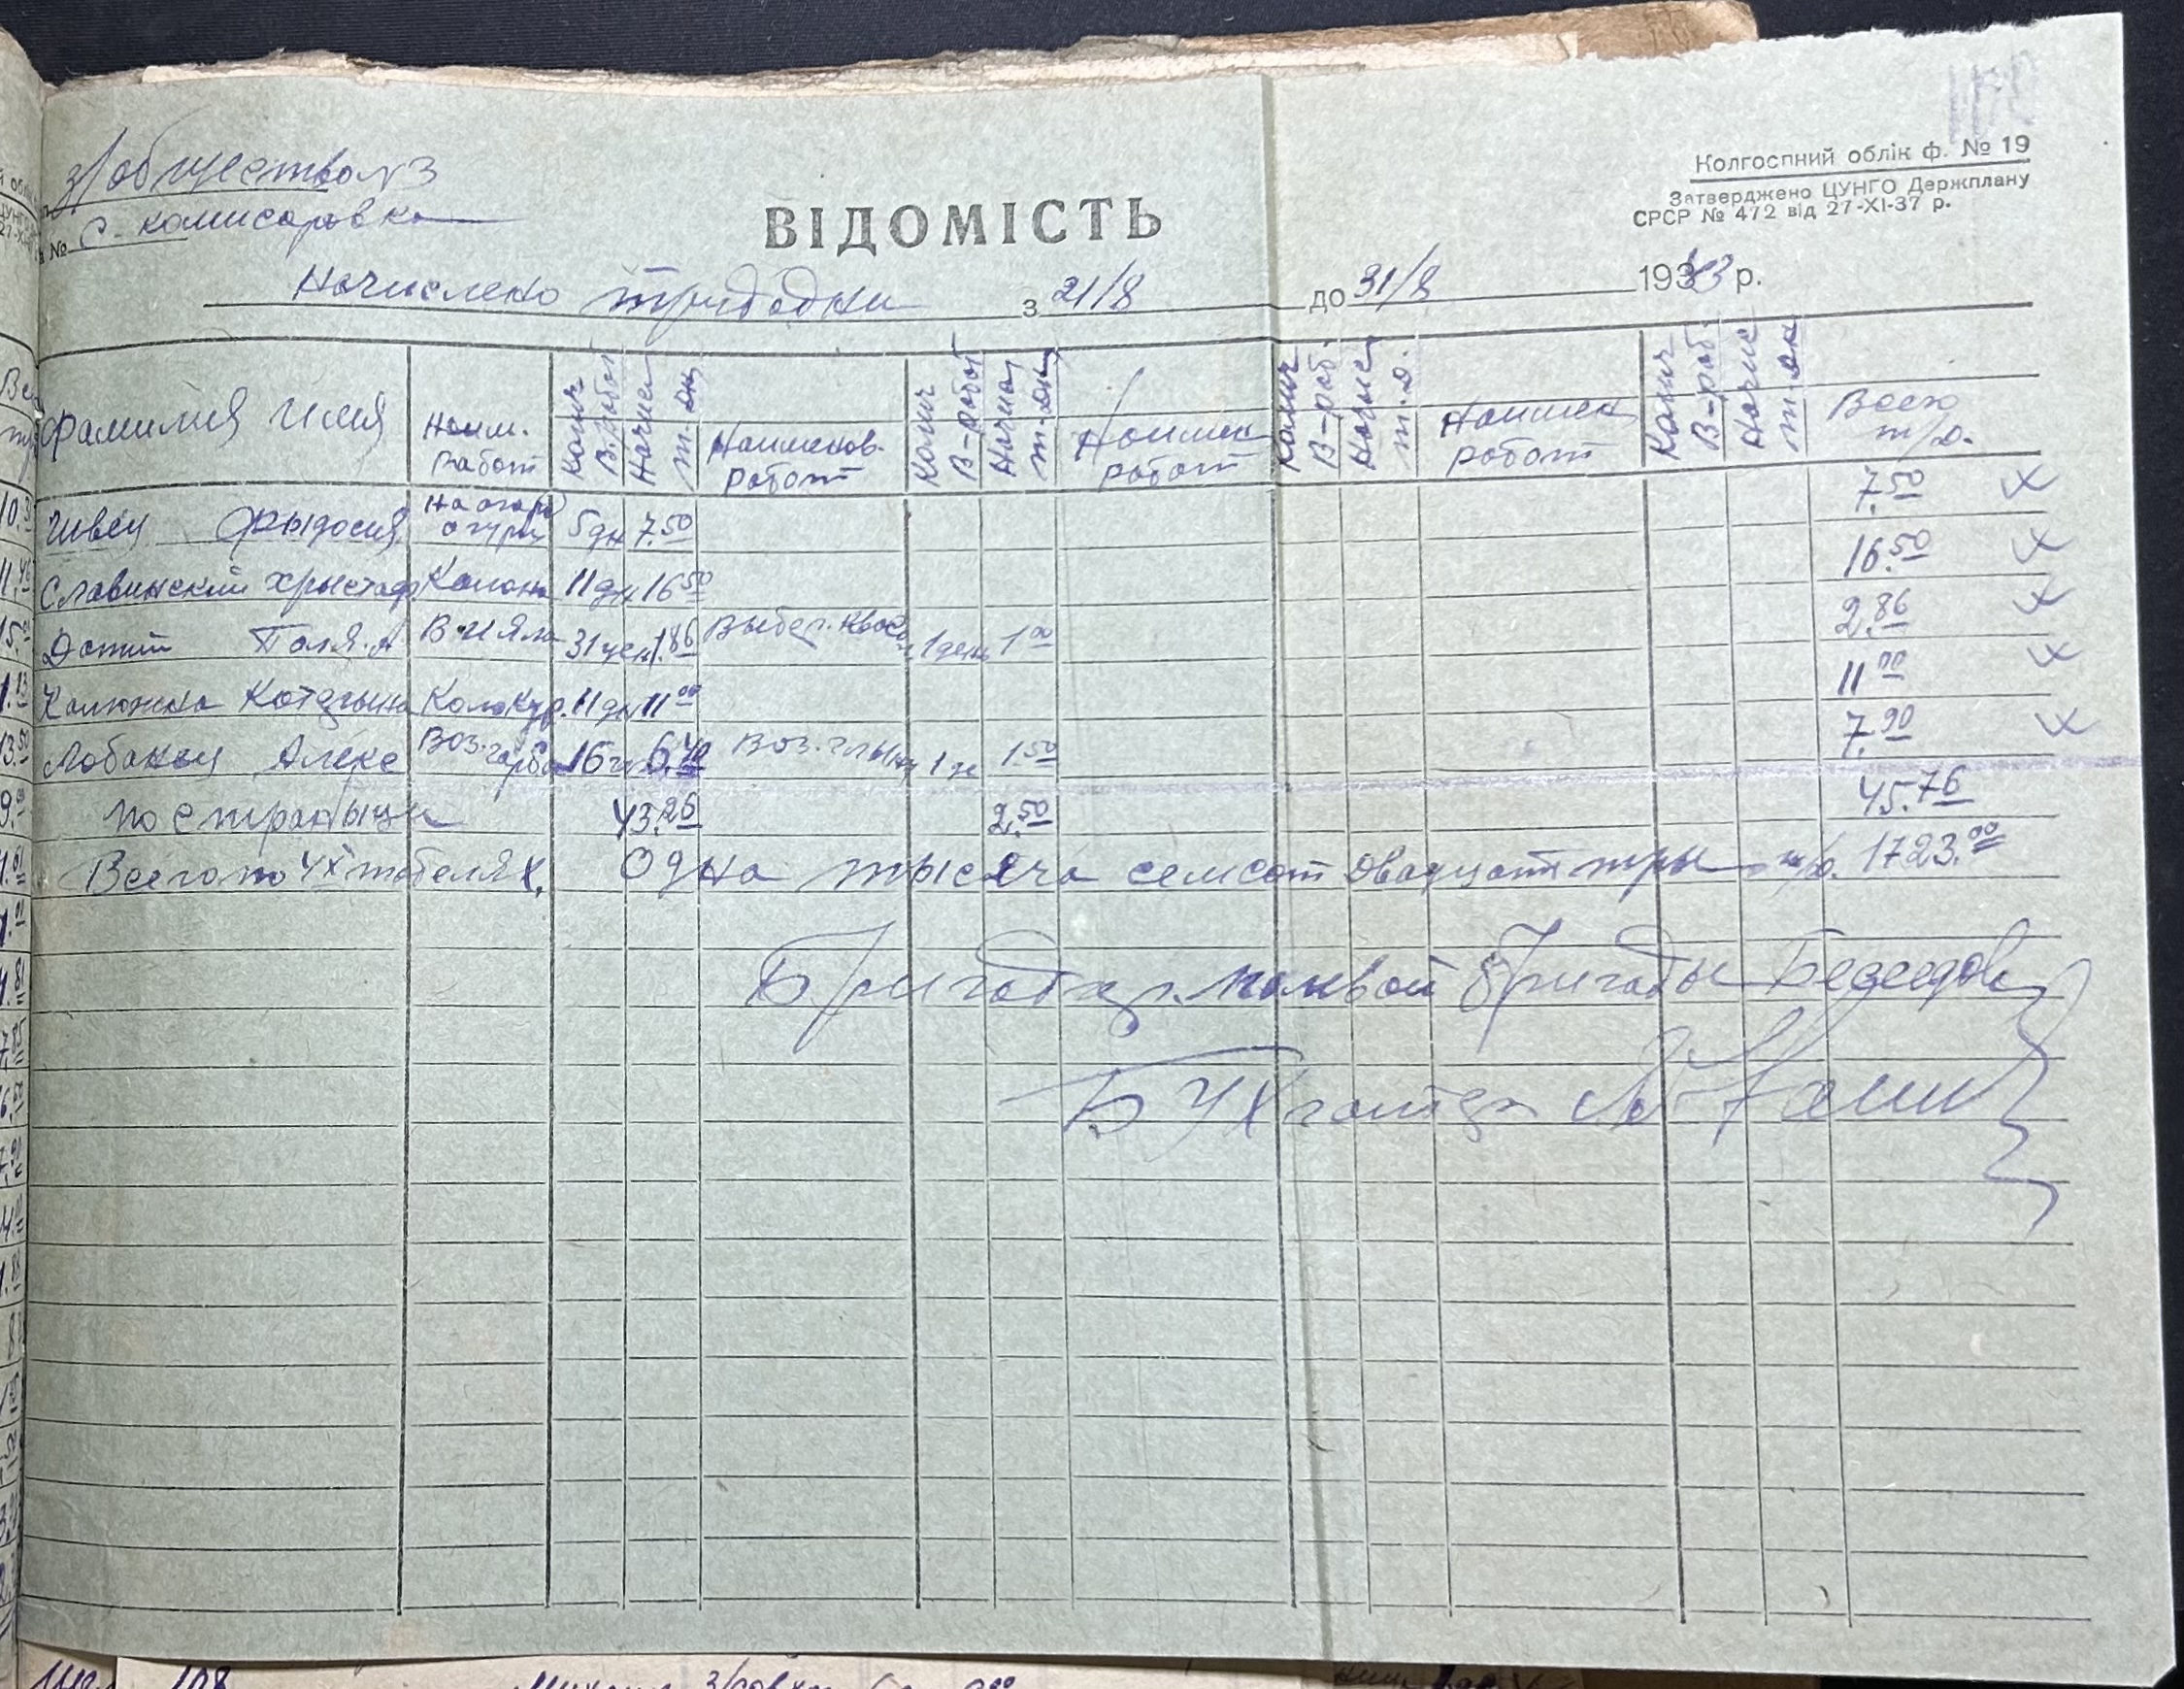 Колгоспний облік ф. № 19
Затверджено ЦУНГО Держплану
СРСР № 472 від 27-XI-37 р.
з/общество N3
№ с. комисаровка
ВІДОМІСТЬ
Начислено трудодни з 21/8 до 31/8 1943 р.
Фамилия Имя Наим. работ Колич В.работ Начисл т-дн Наименов. работ Колич В-работ Начисл т-дн Наимен работ Колич В-раб. Начисл т.д. Наимен работ Колич В-раб. Начис т-дн Всего т/д.
Швец Фыдосия На огор огурц 5дн 7.50 7.50
Славинский Хрыстаф 11дн 16.50 16.50
Поля. А Веяла 31цен 1.86 Выбер. 1день 1.00 2.86
Калюжна Катерына 11дн 11.00 11.00
Лобанец Алекс Воз. гарба 16 6.40 Воз. глыны 1 1.50 7.90
по страныци 43.26 2.50 45.76
Всего по 4х табелях. Одна тысеча семсот двадцат тры т/д. 1723.00
Бригадир полевой бригады
Бухгалтер